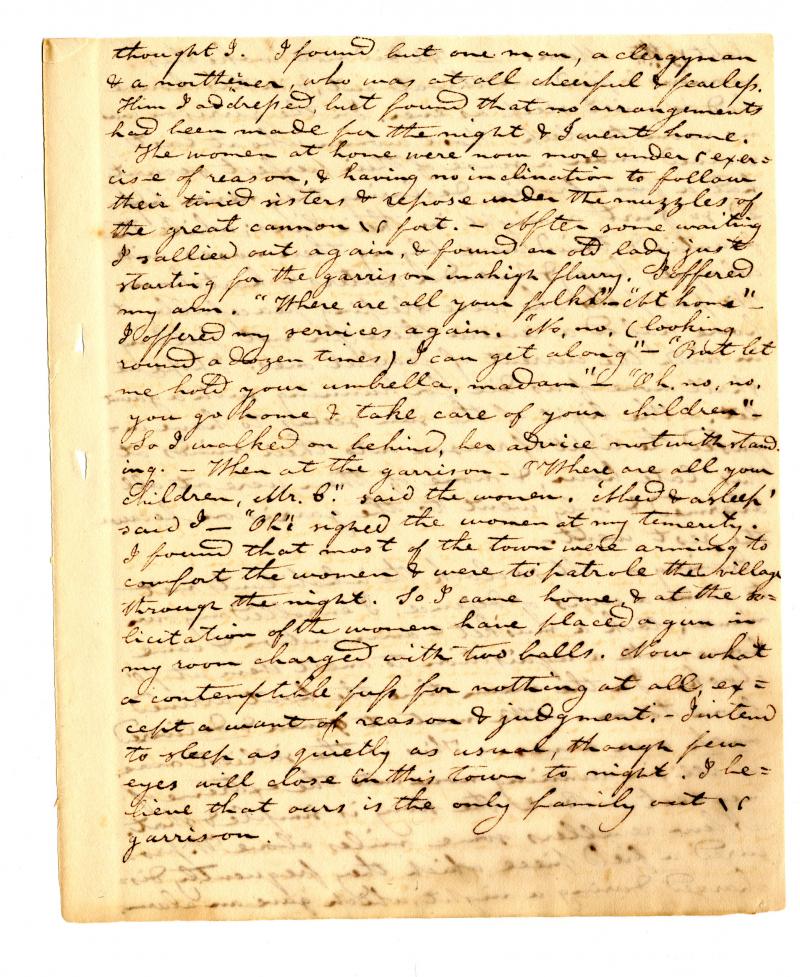 thought I. I found but one man, a clergyman
& a northener, who was at all cheerful & fearless.
Him I addressed, but found that no arrangements
had been made for the night & I went home.
The women at home were now more under exer=
cise of reason, & having no inclination to follow
their timid sisters & repose under the muzzles of
the great cannon fort. – After some waiting
I sallied out again, & found an old lady just
starting for the garrison in a high flurry. I offered
my arm. "Where are all your folks" – "At home" –
I offered my services again. "No, no, (looking
round a dozen times) I can get along" – "But let
me hold your umbrella, madam" – "Oh, no, no,
you go home & take care of your children" –
So I walked on behind, her advice notwithstand
ing. – When at the garrison – "Where are all your
children, Mr. B." said the women. "Abed & asleep'
said I – "Oh" sighed the women at my temerity.
I found that most of the town were arming to
comfort the women & were to patrole the village
through the night. So I came home & at the so=
licitation of the women have placed a gun in
my room charged with two balls. Now what
a contemptible fuss for nothing at all, ex=
cept a want of reason & judgment. – I intend
to sleep as quietly as usual, though few
eyes will close in this town to night. I be=
lieve that ours is the only family out
garrison.